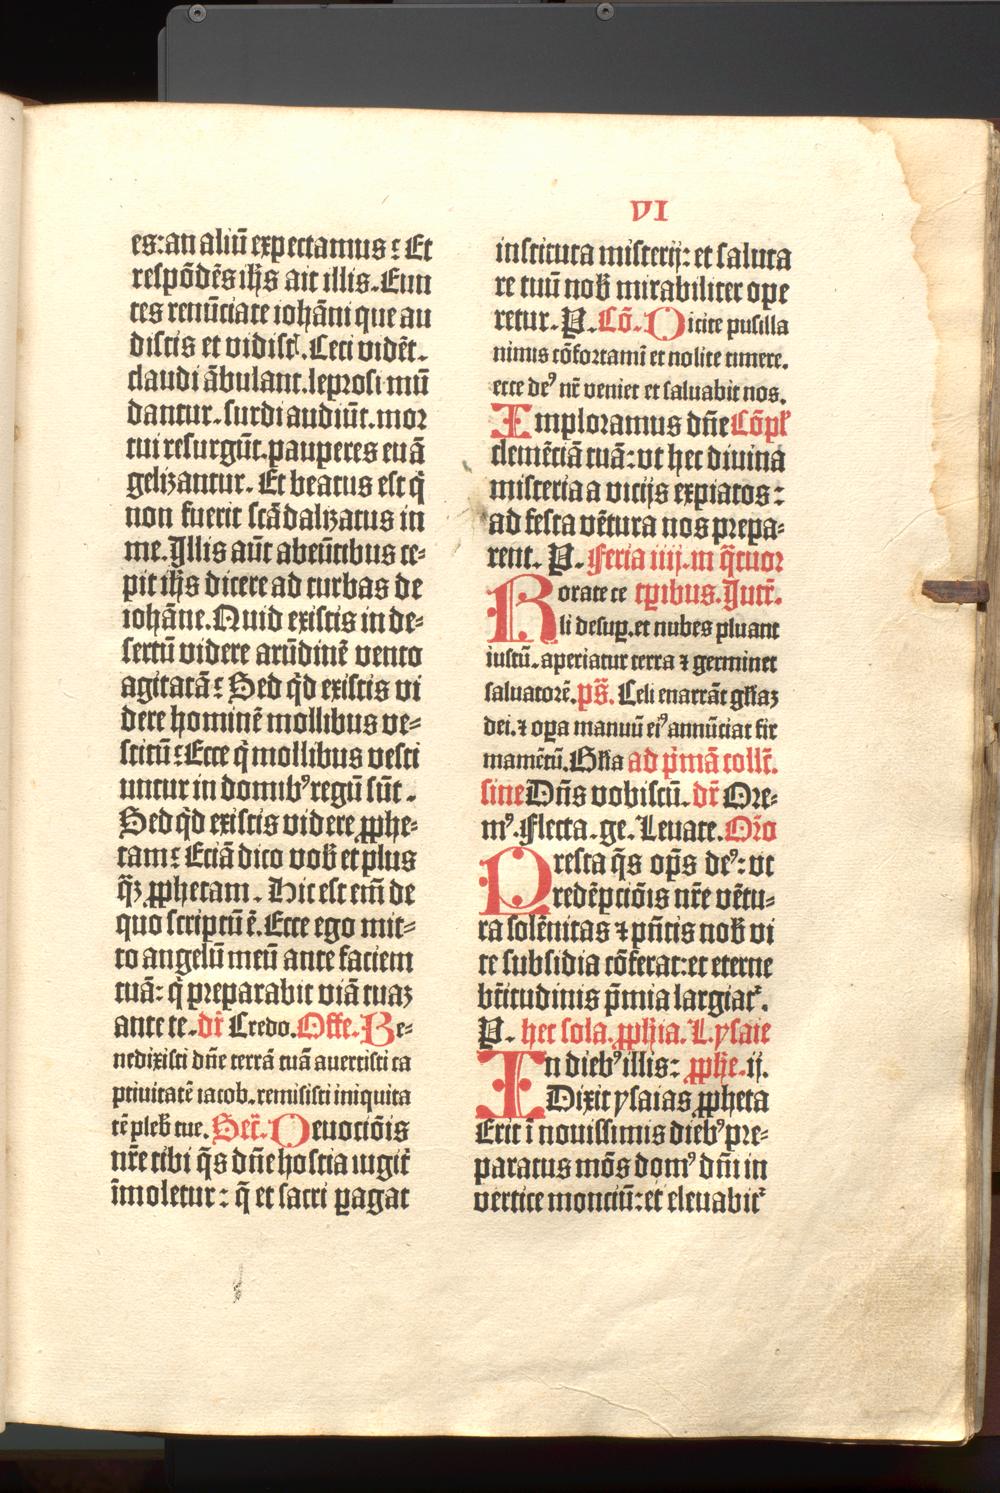 VI
es: an aliū expectamus? Et
respōdēs ihs̄ ait illis. Eun
tes renūciate iohāni que au
distis et vidistꝭ. Ceci vidēt.
claudi ābulant. leprosi mū
dantur. surdi audiūt. mor
tui resurgūt. pauperes euā
gelizantur. Et beatus est q̄
non fuerit scādalizatus in
me. Illis aūt abeūtibus ce-
pit ihs̄ dicere ad turbas de
iohāne. Quid existis in de-
sertū videre arūdinē vento
agitatā? Sed qd̄ existis vi
dere hominē mollibus ve-
stitū? Ecce q̄ mollibus vesti
untur in domibꝰ regū sūt.
Sed qd̄ existis videre ꝓphe-
tam? Eciā dico vob̄ et plus
q̄ꝫ ꝓphetam. Hic est em̄ de
quo scriptū ē. Ecce ego mit-
to angelū meū ante faciem
tuā: q̄ preparabit viā tuaꝫ
ante te. dr̄ Credo. Offe. Be-
nedixisti dn̄e terrā tuā auertisti ca
ptiuitatē iacob. remisisti iniquita
tē pleb̄ tue. Secr̄. Deuotiōis
nr̄e tibi q̄s dn̄e hostia iugit̄
īmoletur: q̄ et sacri ꝑagat
instituta misterij: et saluta
re tuū nob̄ mirabiliter ope
retur. P. Cō. Dicite pusilla
nimis cōfortami et nolite timere.
ecce deꝰ nr̄ veniet et saluabit nos.
Imploramus dn̄e Cōpl̄
clemētiā tuā: vt hec diuina
misteria a vicijs expiatos:
ad festa vētura nos prepa-
rent. P. Feria iiij. in q̄tuor
Rorate ce tꝑibus. Intr̄.
li desuꝑ. et nubes pluant
iustū. aperiatur terra ⁊ germinet
saluatorē. ps̄. Celi enarrāt gl̄iaꝫ
dei. ⁊ oꝑa manuū eiꝰ annūciat fir
mamētū. Gl̄ia ad p̄mā collc̄.
sine Dn̄s vobiscū. dr̄ Ore-
mꝰ. Flecta. ge. Leuate. Oro
Presta q̄s op̄s deꝰ: vt
redēpciōis nr̄e vētu-
ra solēnitas ⁊ pn̄tis nob̄ vi
te subsidia cōferat: et eterne
bt̄itudinis p̄mia largiat᷑.
P. hec sola. ꝓphia. L. ysaie
In diebꝰ illis: ꝓphe. ij.
Dixit ysaias ꝓpheta
Erit ī nouissimis diebꝰ pre-
paratus mōs domꝰ dn̄i in
vertice monciū: et eleuabit᷑